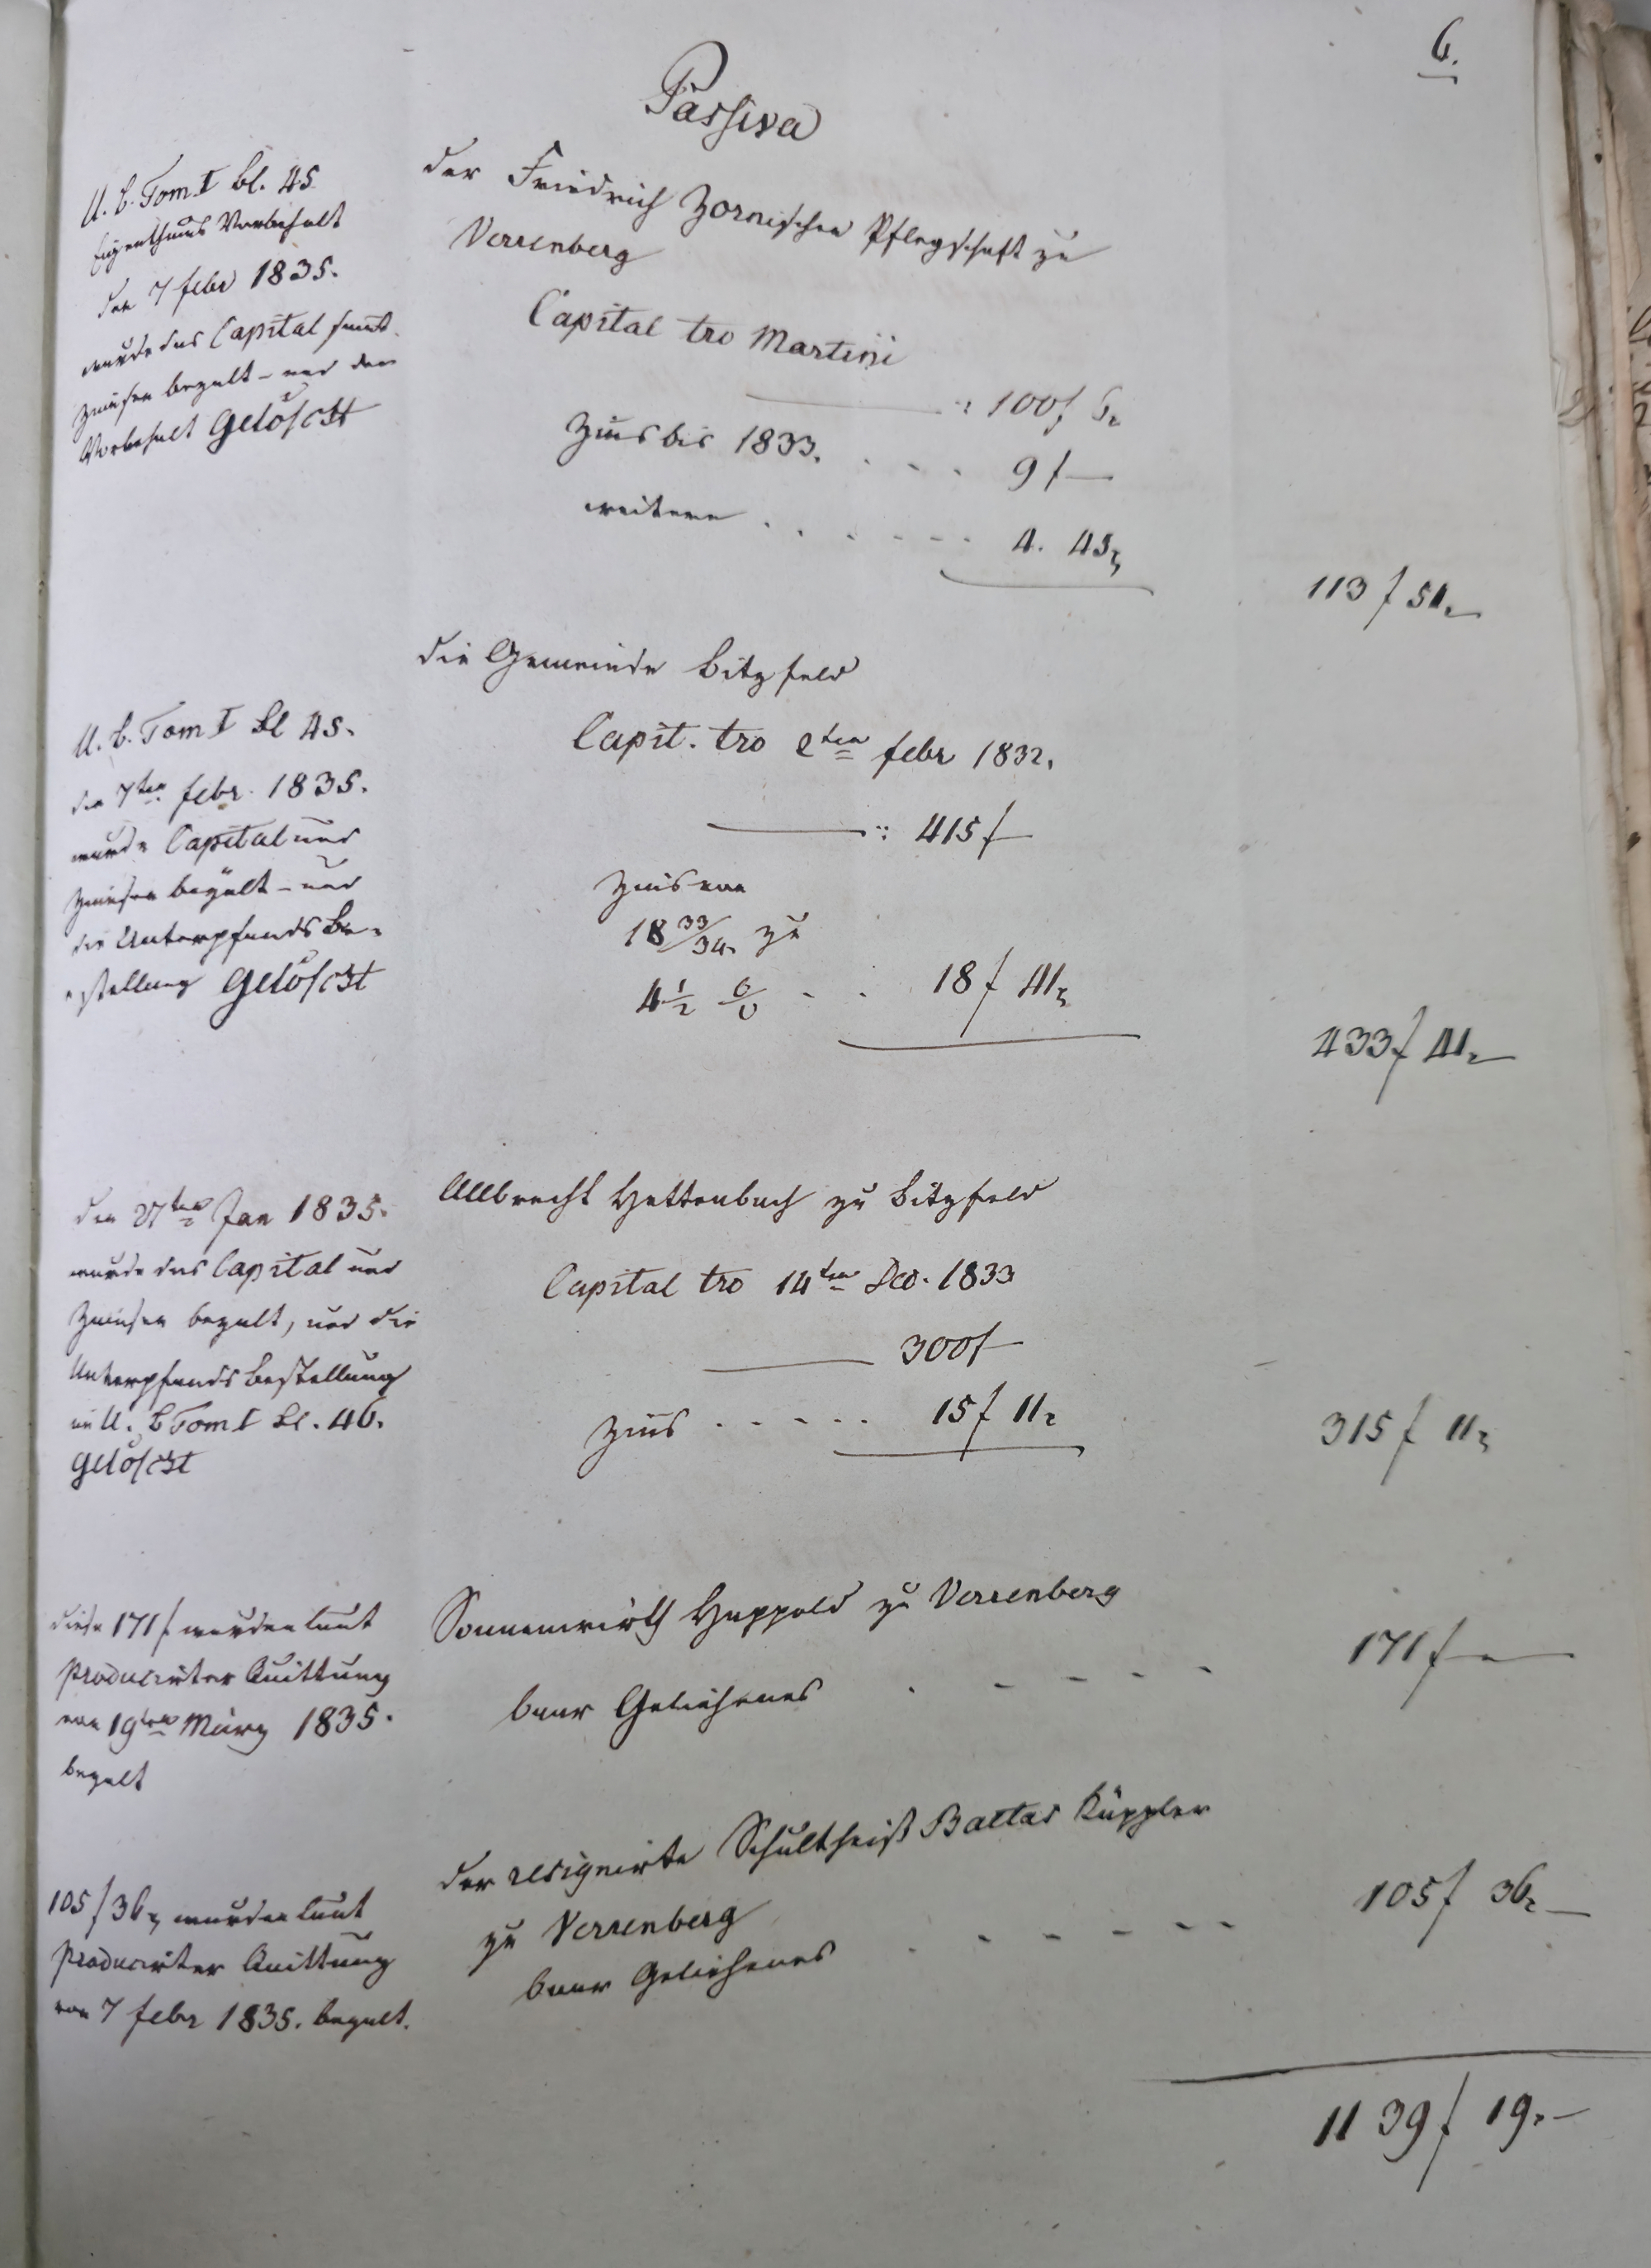 6.
Passiva
U. B. Tom I Bl. 45
Eigenthums Vorbehalt
den 7 febr 1835.
wurde das Capital samt
Zinßen bezalt - und der
Vorbehalt Gelöscht
der Friedrich Zornischen Pflegschaft zu
Verrenberg
Capital tro Martini
: 100 f 6 x
Zins bis 1833. . . . . 9 f —
weitere . . . . . . . 4. 45 x
113 f 51 x
U. B. Tom I Bl 45.
den 7ten febr. 1835.
wurde Capital und
Zinßen bezalt - und
die Unterpfands Be-
stellung Gelöscht
die Gemeinde Bitzfeld
Capit. tro 2ten febr 1832.
: 415 f —
Zins von
18 33/34. zu
4 1/2 % . . 18 f 41 x
433 f 41 x
den 27ten Jan 1835.
wurde das Capital und
Zinßen bezalt, und die
Unterpfands Bestellung
im U. B Tom I Bl. 46.
Gelöscht
Allbrecht Hettenbach zu Bitzfeld
Capital tro 14ten Dec. 1833
300 f —
Zins . . . . . 15 f 11 x
315 f 11 x
diese 171 f wurden laut
Producirter Quittung
von 19ten März 1835.
bezalt
Sonnenwirth Happold zu Verrenberg
baar Geliehenes . . . . .
171 f —
105 f 36 x wurden laut
Producirter Quittung
von 7 febr 1835. bezalt.
der resignirte Schultheiß Baltas Küppler
zu Verrenberg
baar Geliehenes . . . . . .
105 f 36 x
1139 f 19 x